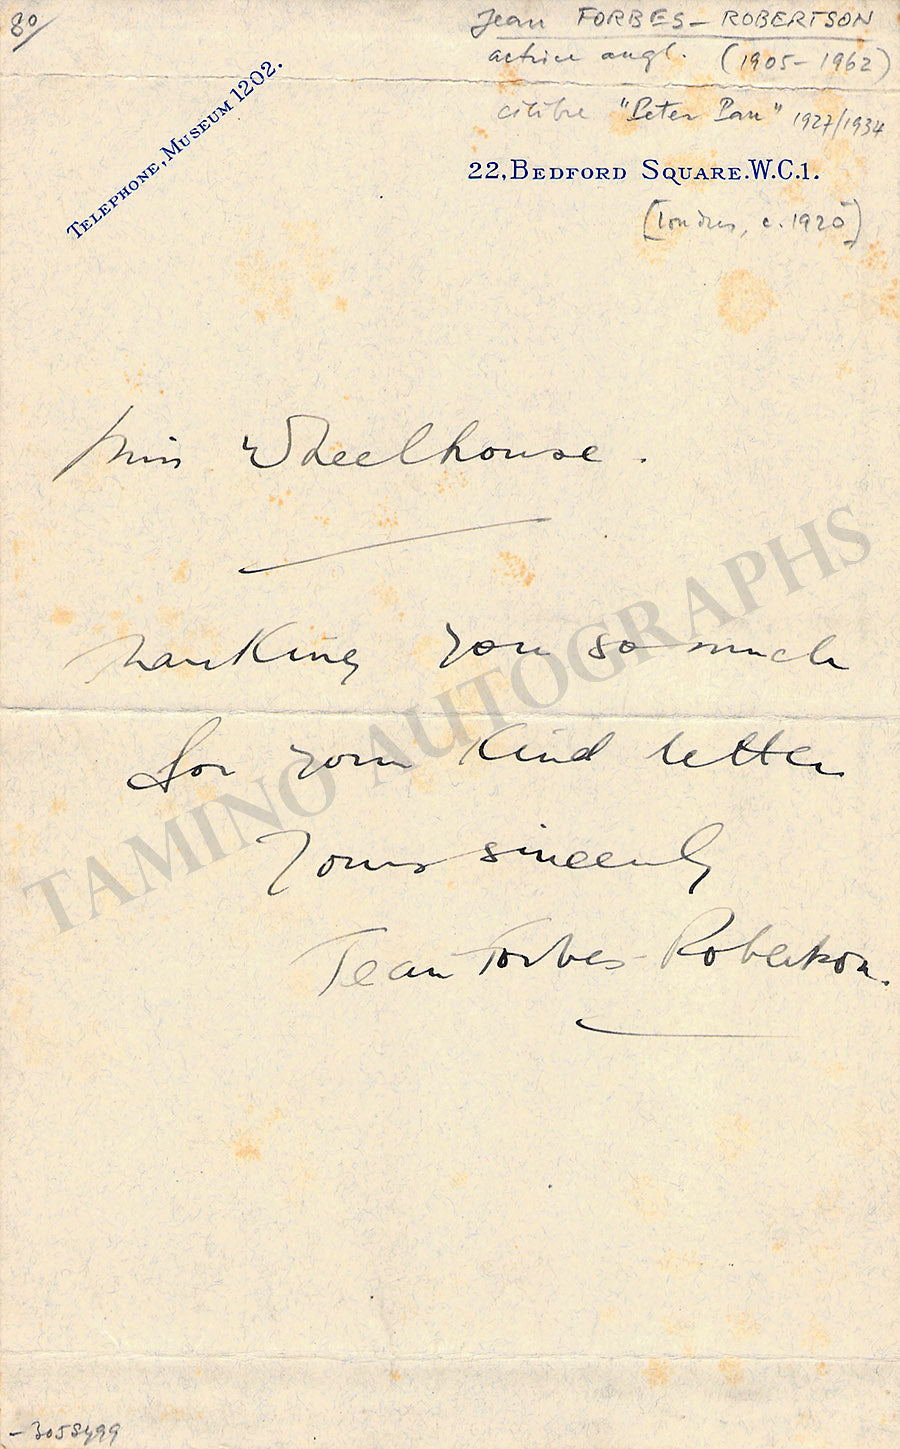 80
Jean FORBES-ROBERTSON
actrice angl. (1905-1962)
célèbre "Peter Pan" 1927/1934
TELEPHONE, MUSEUM 1202.
22, BEDFORD SQUARE. W.C.1.
[Londres, c. 1920]
Miss Wheelhouse.
Thanking you so much
for your kind letter
Yours sincerely
Jean Forbes-Robertson.
TAMINO AUTOGRAPHS